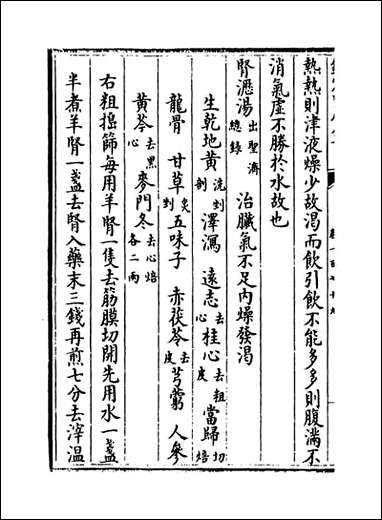 熱熱則津液燥少故渴而飲引飲不能多多則腹滿不
消氣虛不勝於水故也
腎瀝湯出聖濟總錄 治臟氣不足内燥發渴
生乾地黄洗剉剖 澤瀉 遠志去心 桂心去粗皮 當歸切焙
龍骨 甘草炙剉 五味子 赤茯苓去皮 芎藭 人參
黄芩去黑心 麥門冬去心焙各二兩
右粗搗篩每用羊腎一隻去筋膜切開先用水一盞
半煮羊腎一盞去腎入藥末三錢再煎七分去滓温